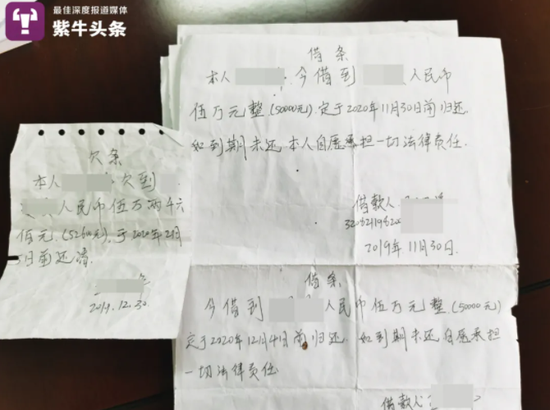 最佳深度报道媒体
紫牛头条
借条
本人 今借到 人民币
伍万元整(50000元).定于2020年11月30日前归还
如到期未还本人自愿承担一切法律责任.
借款人
2019年11月30日.
欠条
本人 欠到
人民币伍万两千六
佰元.(52600元).于2020年2月
日前还清
2019.12.30
借条
今借到 人民币伍万元整.(50000元)
定于2020年12月4日前归还.如到期未还自愿承担
一切法律责任.
借款人: